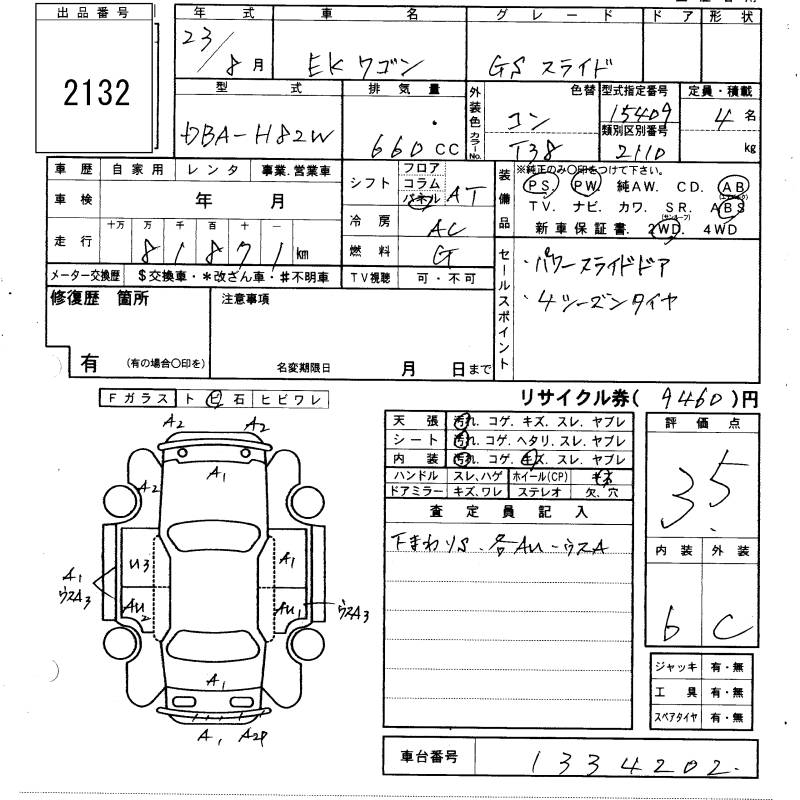 出品番号
2132
年式 車名 グレード ドア 形状
23/8月 EKワゴン GSスライド
型式 排気量 外装色 色替 型式指定番号 定員・積載
カラーNo. 類別区別番号
DBA-H82W 660CC コン T38 15409 2110 4名
kg
車歴 自家用 レンタ 事業.営業車
車検 年 月
走行 十万 万 千 百 十 一
81871km
メーター交換歴 $交換車・*改ざん車・#不明車
シフト フロア コラム パネル AT
冷房 AC
燃料 G
TV視聴 可・不可
装備品
※純正のみ○印をつけて下さい。
PS. PW. 純AW. CD. AB
(エアバック)
TV. ナビ. カワ. SR. ABS
(サンルーフ)
新車保証書. 2WD. 4WD
セールスポイント
・パワースライドドア
・4シーズンタイヤ
修復歴 箇所
有 (有の場合○印を)
注意事項
名変期限日 月 日まで
リサイクル券( 9460 )円
Fガラス ト ピ 石 ヒビワレ
A2 A2
A1
A2
U3 A1
A1 ウスA3
AU2 AU1 ウスA3
A1
A1 A2P
天張 汚れ. コゲ. キズ. スレ. ヤブレ
シート 汚れ. コゲ. ヘタリ. スレ. ヤブレ
内装 汚れ. コゲ. キズ. スレ. ヤブレ
ハンドル スレ,ハゲ ホイール(CP)
ドアミラー キズ,ワレ ステレオ 欠. 穴
査定員記入
下まわりS. 各AU-ウスA
評価点
3.5
内装 外装
b C
ジャッキ 有・無
工具 有・無
スペアタイヤ 有・無
車台番号 1334202.